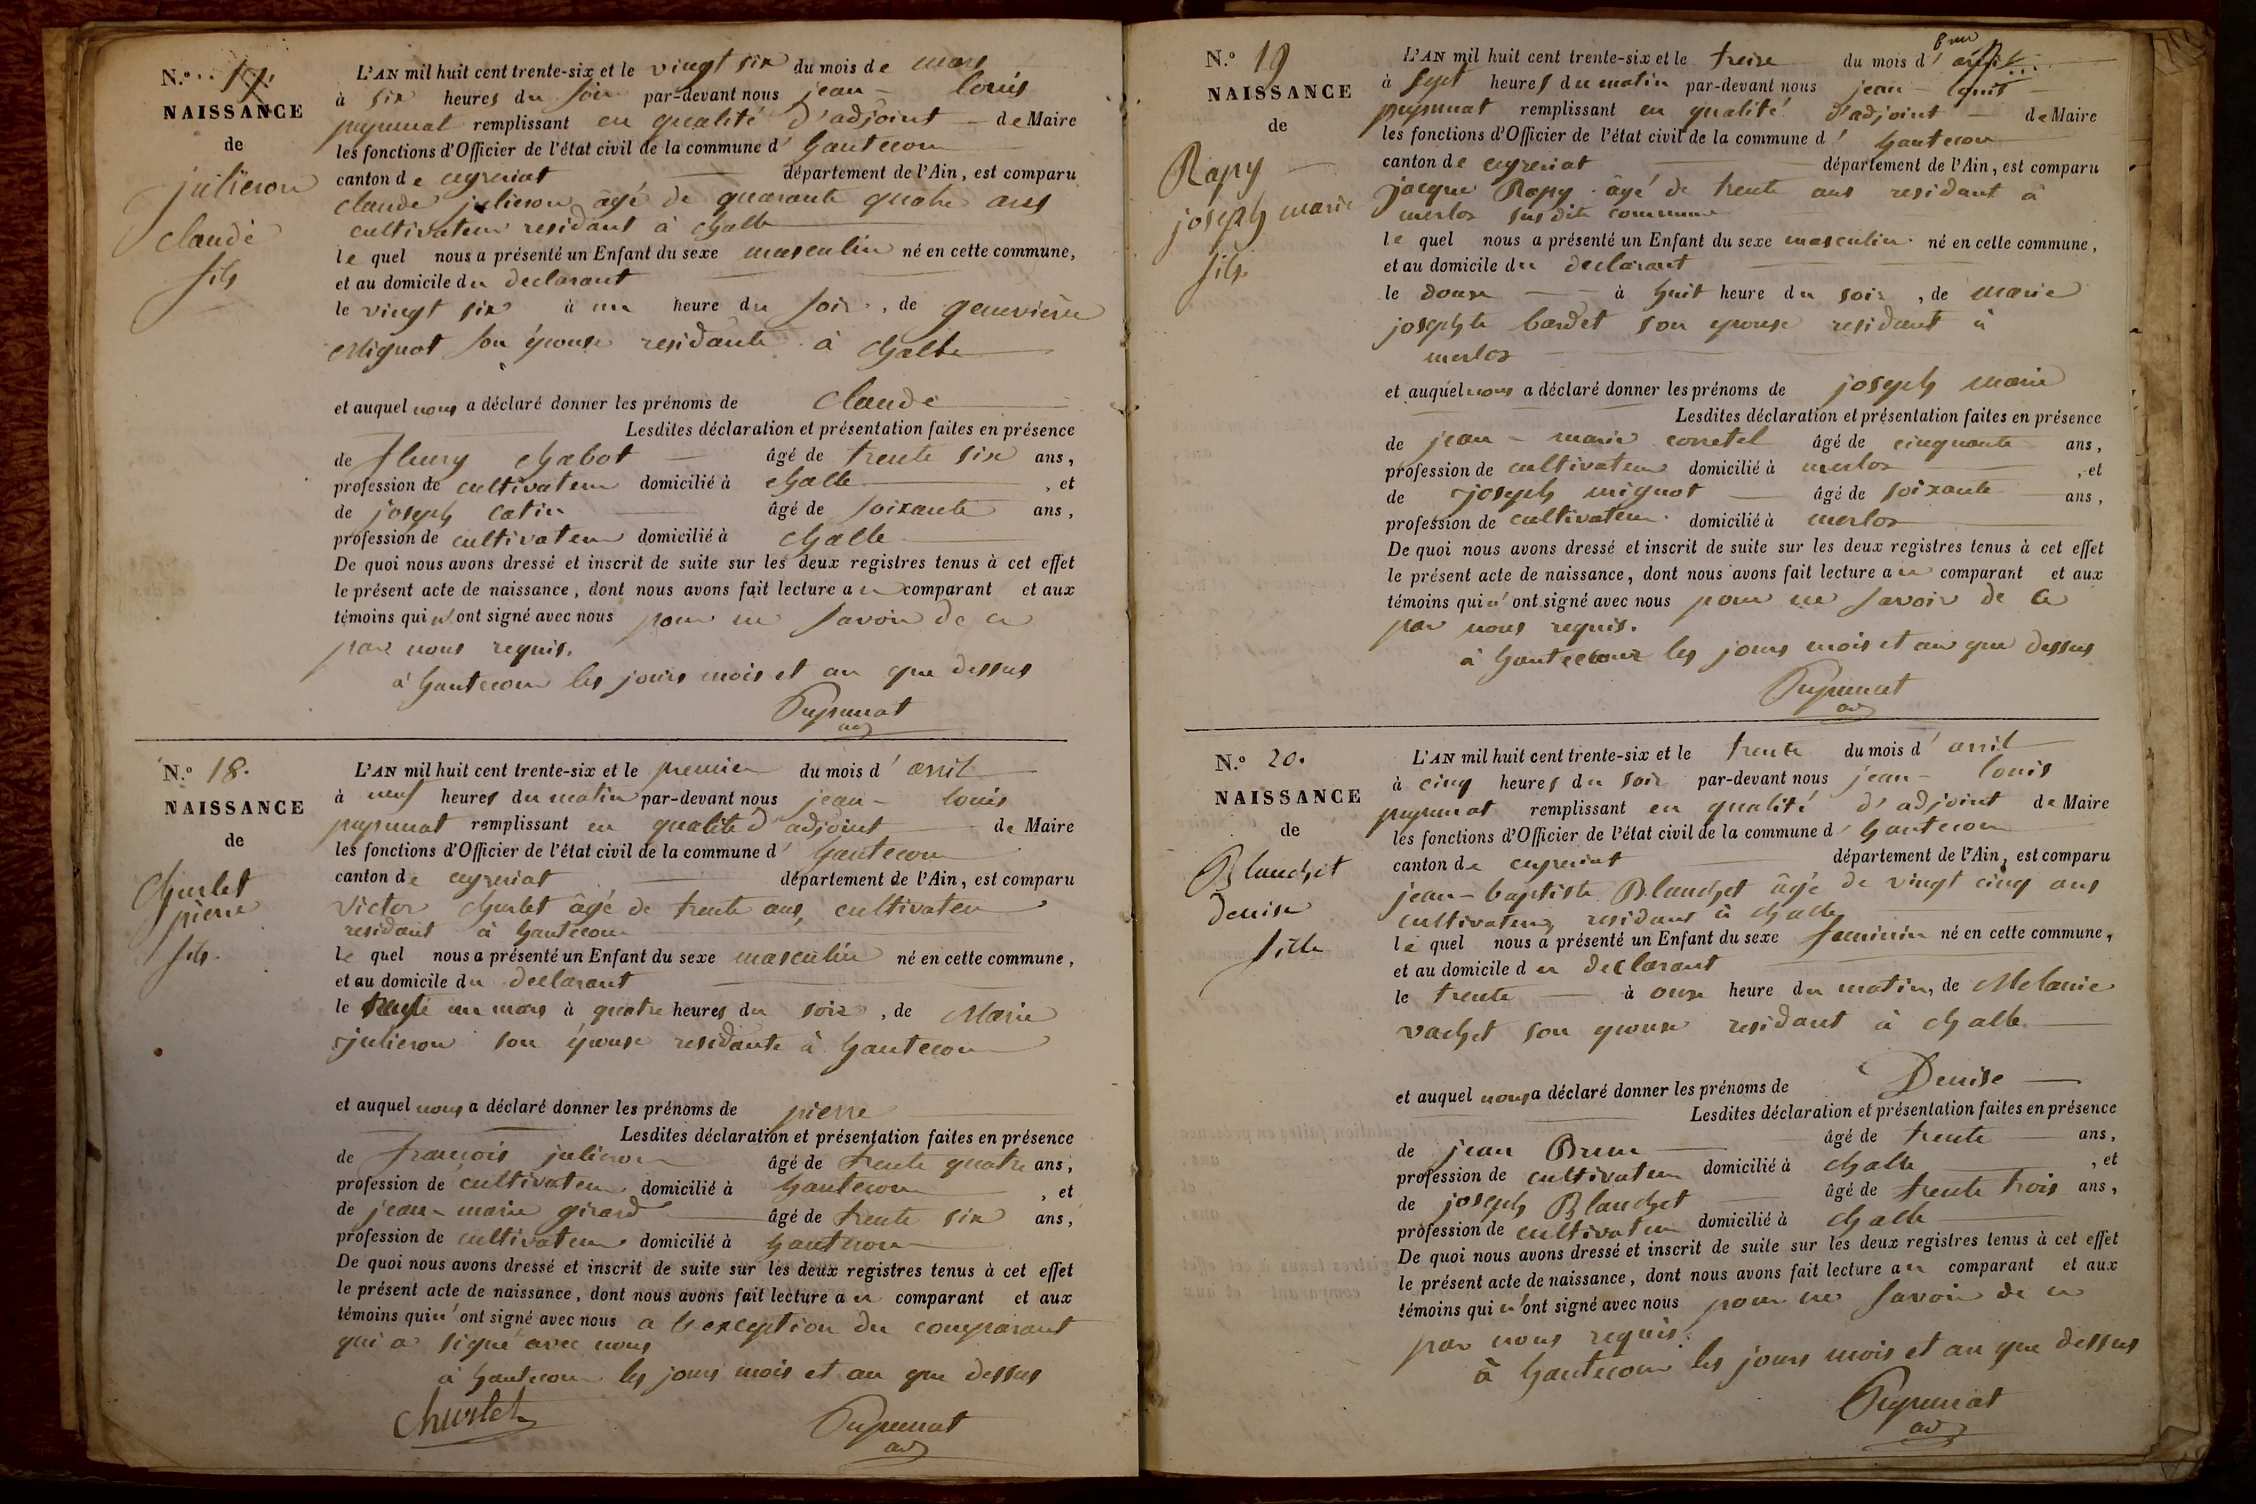 N.º 17.
NAISSANCE
de
julieron
claude
fils
L'AN mil huit cent trente-six et le vingt six du mois de mars
à six heures du soir par-devant nous jean - louis
pupunat remplissant en qualité d'adjoint de Maire
les fonctions d'Officier de l'état civil de la commune d' hautecour
canton de ceyzeriat département de l'Ain, est comparu
claude julieron âgé de quarante quatre ans
cultivateur residant à challe
le quel nous a présenté un Enfant du sexe masculin né en cette commune,
et au domicile du declarant
le vingt six à un heure du soir, de genevieve
Mignot son épouse residante à challe
et auquel nous a déclaré donner les prénoms de claude
Lesdites déclaration et présentation faites en présence
de fleury chabot âgé de trente six ans,
profession de cultivateur domicilié à challe, et
de joseph catin âgé de soixante ans,
profession de cultivateur domicilié à challe
De quoi nous avons dressé et inscrit de suite sur les deux registres tenus à cet effet
le présent acte de naissance, dont nous avons fait lecture au comparant et aux
témoins qui n'ont signé avec nous pour ne savoir de ce
par nous requis.
à hautecour les jours mois et an que dessus
Pupunat
adj
N.º 18.
NAISSANCE
de
Churlet
pierre
fils.
L'AN mil huit cent trente-six et le premier du mois d'avril
à neuf heures du matin par-devant nous jean - louis
pupunat remplissant en qualité d'adjoint de Maire
les fonctions d'Officier de l'état civil de la commune d' hautecour
canton de ceyzeriat département de l'Ain, est comparu
victor churlet âgé de trente ans, cultivateur
residant à hautecour
le quel nous a présenté un Enfant du sexe masculin né en cette commune,
et au domicile du declarant
le trente un mars à quatre heures du soir, de Marie
julieron son épouse residante à hautecour
et auquel nous a déclaré donner les prénoms de pierre
Lesdites déclaration et présentation faites en présence
de francois julieron âgé de trente quatre ans,
profession de cultivateur domicilié à hautecour, et
de jean - marie girard âgé de trente six ans,
profession de cultivateur domicilié à hautecour
De quoi nous avons dressé et inscrit de suite sur les deux registres tenus à cet effet
le présent acte de naissance, dont nous avons fait lecture au comparant et aux
témoins qui n'ont signé avec nous a lexception du comparant
qui a signé avec nous
à hautecour les jours mois et an que dessus
Churlet Pupunat
adj
N.º 19
NAISSANCE
de
Rapy
joseph marie
fils.
L'AN mil huit cent trente-six et le treize du mois d'avril
à sept heures du matin par-devant nous jean - louis
pupunat remplissant en qualité d'adjoint de Maire
les fonctions d'Officier de l'état civil de la commune d' hautecour
canton de ceyzeriat département de l'Ain, est comparu
jacque Rapy âgé de trente ans residant à
merloz susdite commune
le quel nous a présenté un Enfant du sexe masculin né en cette commune,
et au domicile du declarant
le douze à huit heure du soir, de marie
josephte bardet son epouse residant à
merloz
et auquel nous a déclaré donner les prénoms de joseph marie
Lesdites déclaration et présentation faites en présence
de jean - marie corretel âgé de cinquante ans,
profession de cultivateur domicilié à merloz, et
de joseph mignot âgé de soixante ans,
profession de cultivateur domicilié à merloz
De quoi nous avons dressé et inscrit de suite sur les deux registres tenus à cet effet
le présent acte de naissance, dont nous avons fait lecture au comparant et aux
témoins qui n'ont signé avec nous pour ne savoir de ce
par nous requis.
à hautecour les jours mois et an que dessus
Pupunat
adj
N.º 20.
NAISSANCE
de
Blanchet
Denise
fille
L'AN mil huit cent trente-six et le trente du mois d'avril
à cinq heures du soir par-devant nous jean - louis
pupunat remplissant en qualité d'adjoint de Maire
les fonctions d'Officier de l'état civil de la commune d' hautecour
canton de ceyzeriat département de l'Ain, est comparu
jean - baptiste Blanchet âgé de vingt cinq ans
cultivateur, residant à challe
le quel nous a présenté un Enfant du sexe feminin né en cette commune,
et au domicile du declarant
le trente à onze heure du matin, de Melanie
vachet son epouse residant à challe
et auquel nous a déclaré donner les prénoms de Denise
Lesdites déclaration et présentation faites en présence
de jean Brun âgé de trente ans,
profession de cultivateur domicilié à challe, et
de joseph Blanchet âgé de trente trois ans,
profession de cultivateur domicilié à challe
De quoi nous avons dressé et inscrit de suite sur les deux registres tenus à cet effet
le présent acte de naissance, dont nous avons fait lecture au comparant et aux
témoins qui n'ont signé avec nous pour ne savoir de ce
par nous requis.
à hautecour les jours mois et an que dessus
Pupunat
adj